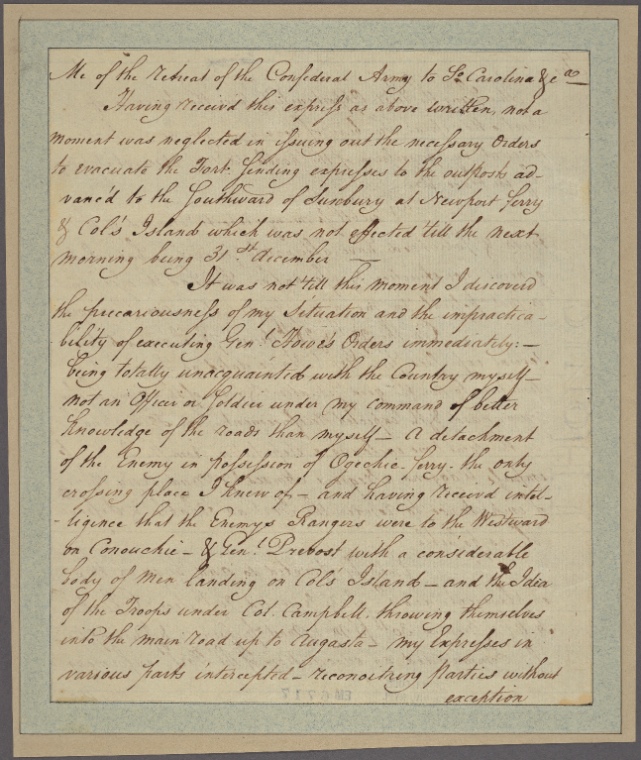 Me of the retreat of the Confederal Army to So Carolina &ca
Having receivd this express as above written, not a
moment was neglected in issuing out the necessary Orders
to evacuate the Fort. sending expresses to the outposts ad-
vanc'd to the Southward of Sunbury at Newport ferry
& Col's Island which was not effected 'till the next
morning being 31st december —
It was not 'till this moment I discoverd
the precariousness of my Situation and the impractica-
bility of executing Genl Howe's Orders immediately:—
being totally unacquainted with the Country myself—
not an Officer or Soldier under my command of better
knowledge of the roads than myself— a detachment
of the Enemy in possession of Ogechie ferry. the only
crossing place I knew of— and having receivd intel-
-ligence that the Enemys Rangers were to the Westward
on Conouchie— & Genl Prevost with a considerable
body of men landing on Col's Island— and the Idea
of the Troops under Col. Campbell. throwing themselves
into the main road up to Augasta— my Expresses in
various parts intercepted— reconoitring Parties without
exception
EM6717